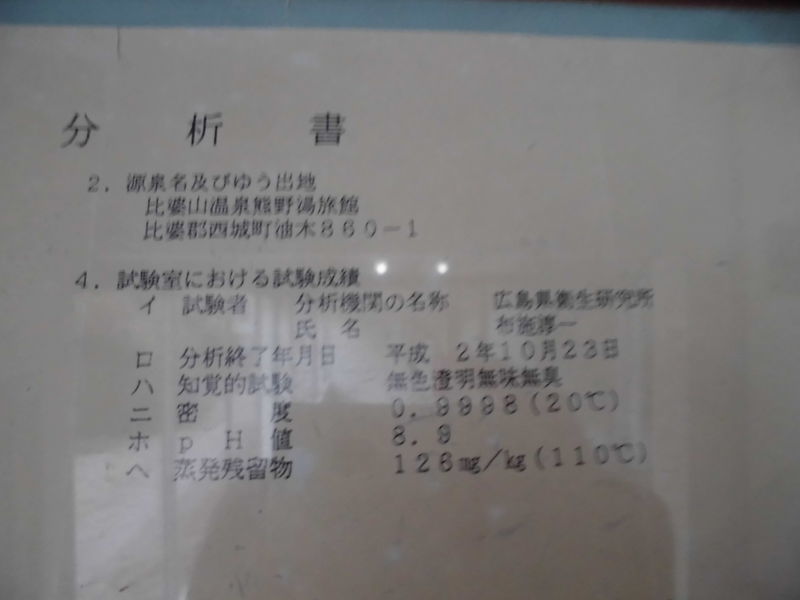 分析書
2．源泉名及びゆう出地
比婆山温泉熊野湯旅館
比婆郡西城町油木860－1
4．試験室における試験成績
イ 試験者 分析機関の名称 広島県衛生研究所
氏名 布施淳一
ロ 分析終了年月日 平成 2年10月23日
ハ 知覚的試験 無色澄明無味無臭
ニ 密度 0．9998(20℃)
ホ pH値 8．9
ヘ 蒸発残留物 126㎎／㎏(110℃)